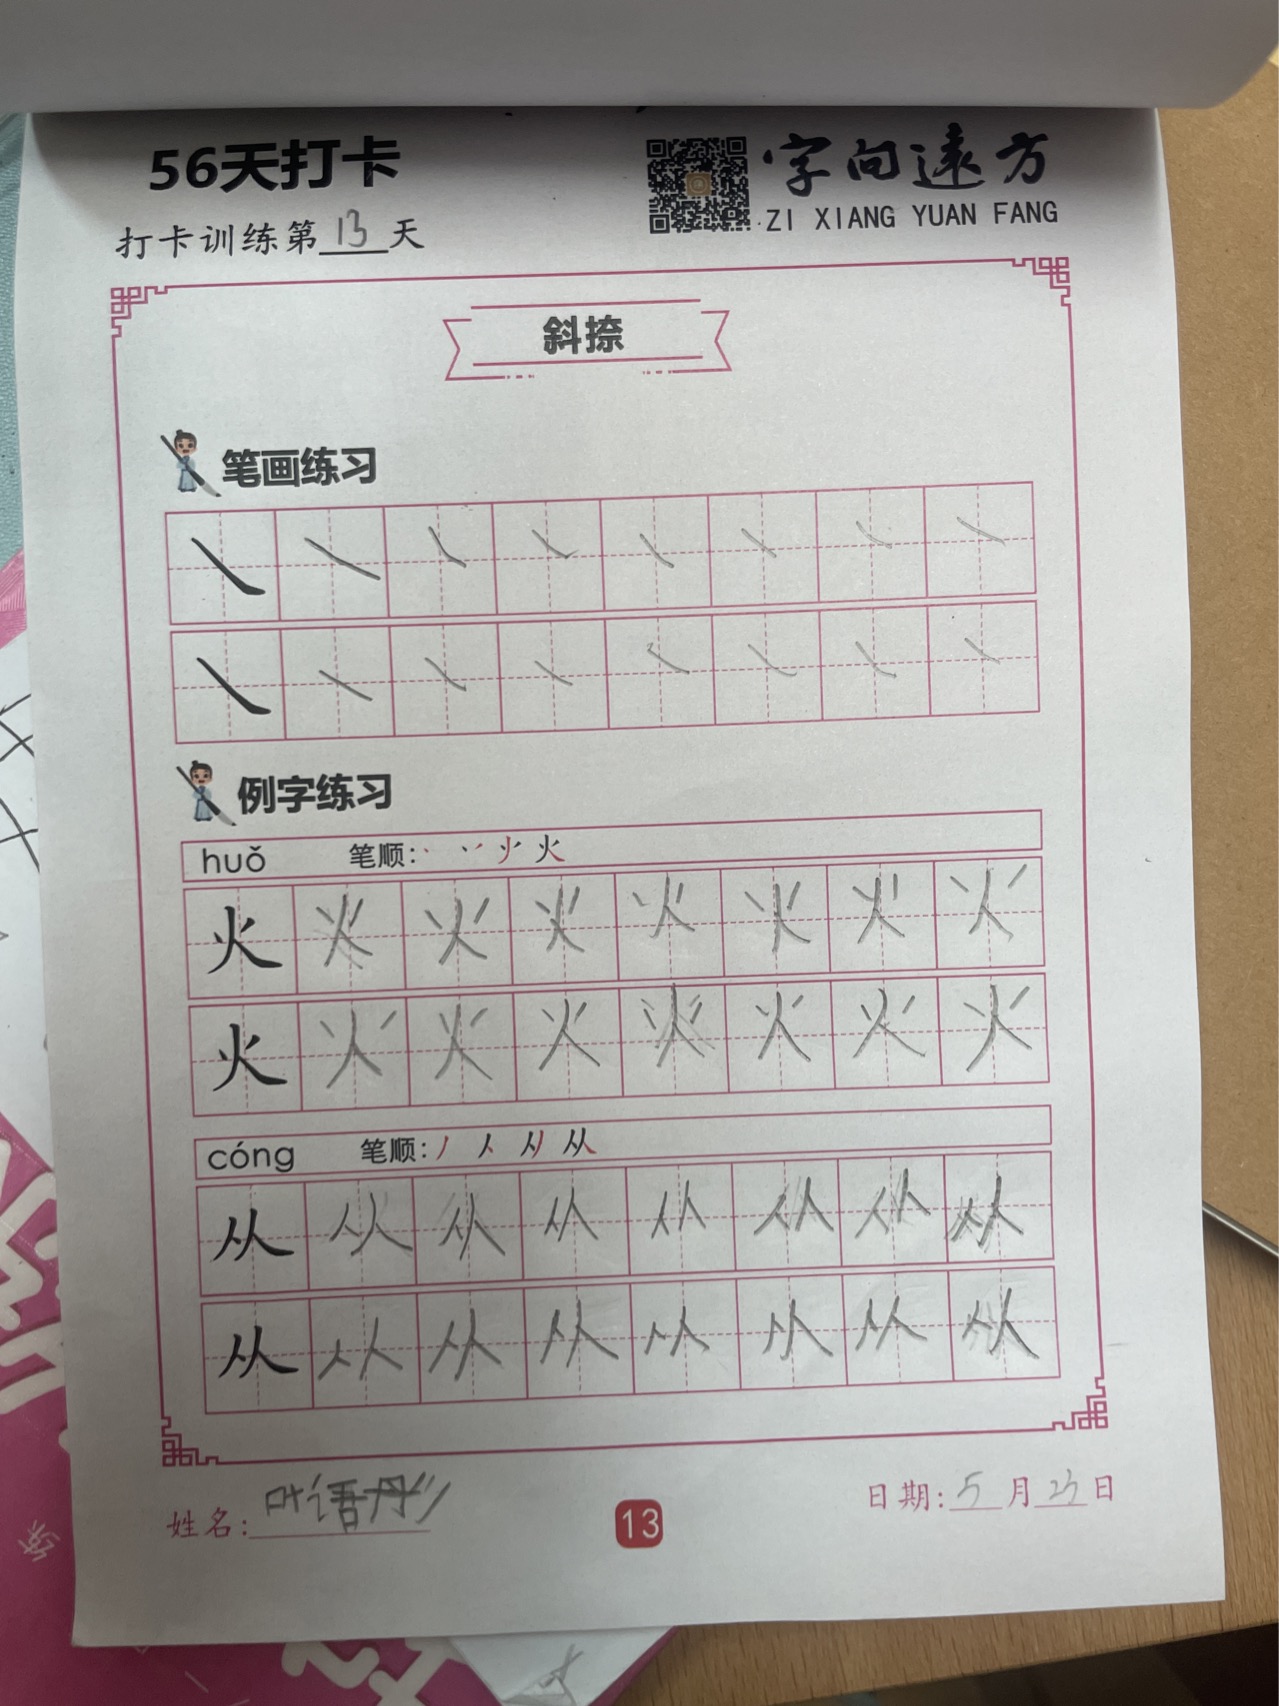 56天打卡
字向远方
打卡训练第13天
ZI XIANG YUAN FANG
斜捺
笔画练习
例字练习
huǒ 笔顺:
火 火 火 火 火 火 火 火
火 火 火 火 火 火 火 火
cóng 笔顺:
从 从 从 从 从 从 从 从
从 从 从 从 从 从 从 从
姓名:叶语彤
13
日期:5月23日
练